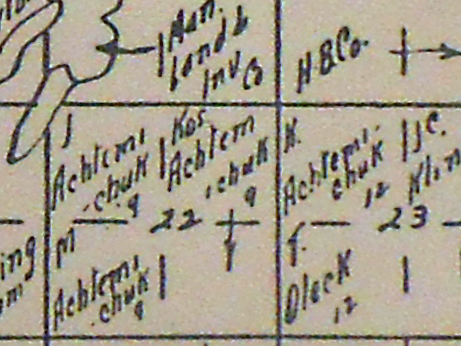 Man.
Land &
Inv Co
H.B.Co.
J
Achtemi
chuk
9
Kos
Achtem
ichuk
9
K.
Achtemi-
chuk
12
J.C.
Klin
22
23
ing
M
Achtemi
chuk
9
T.
Oleck
12